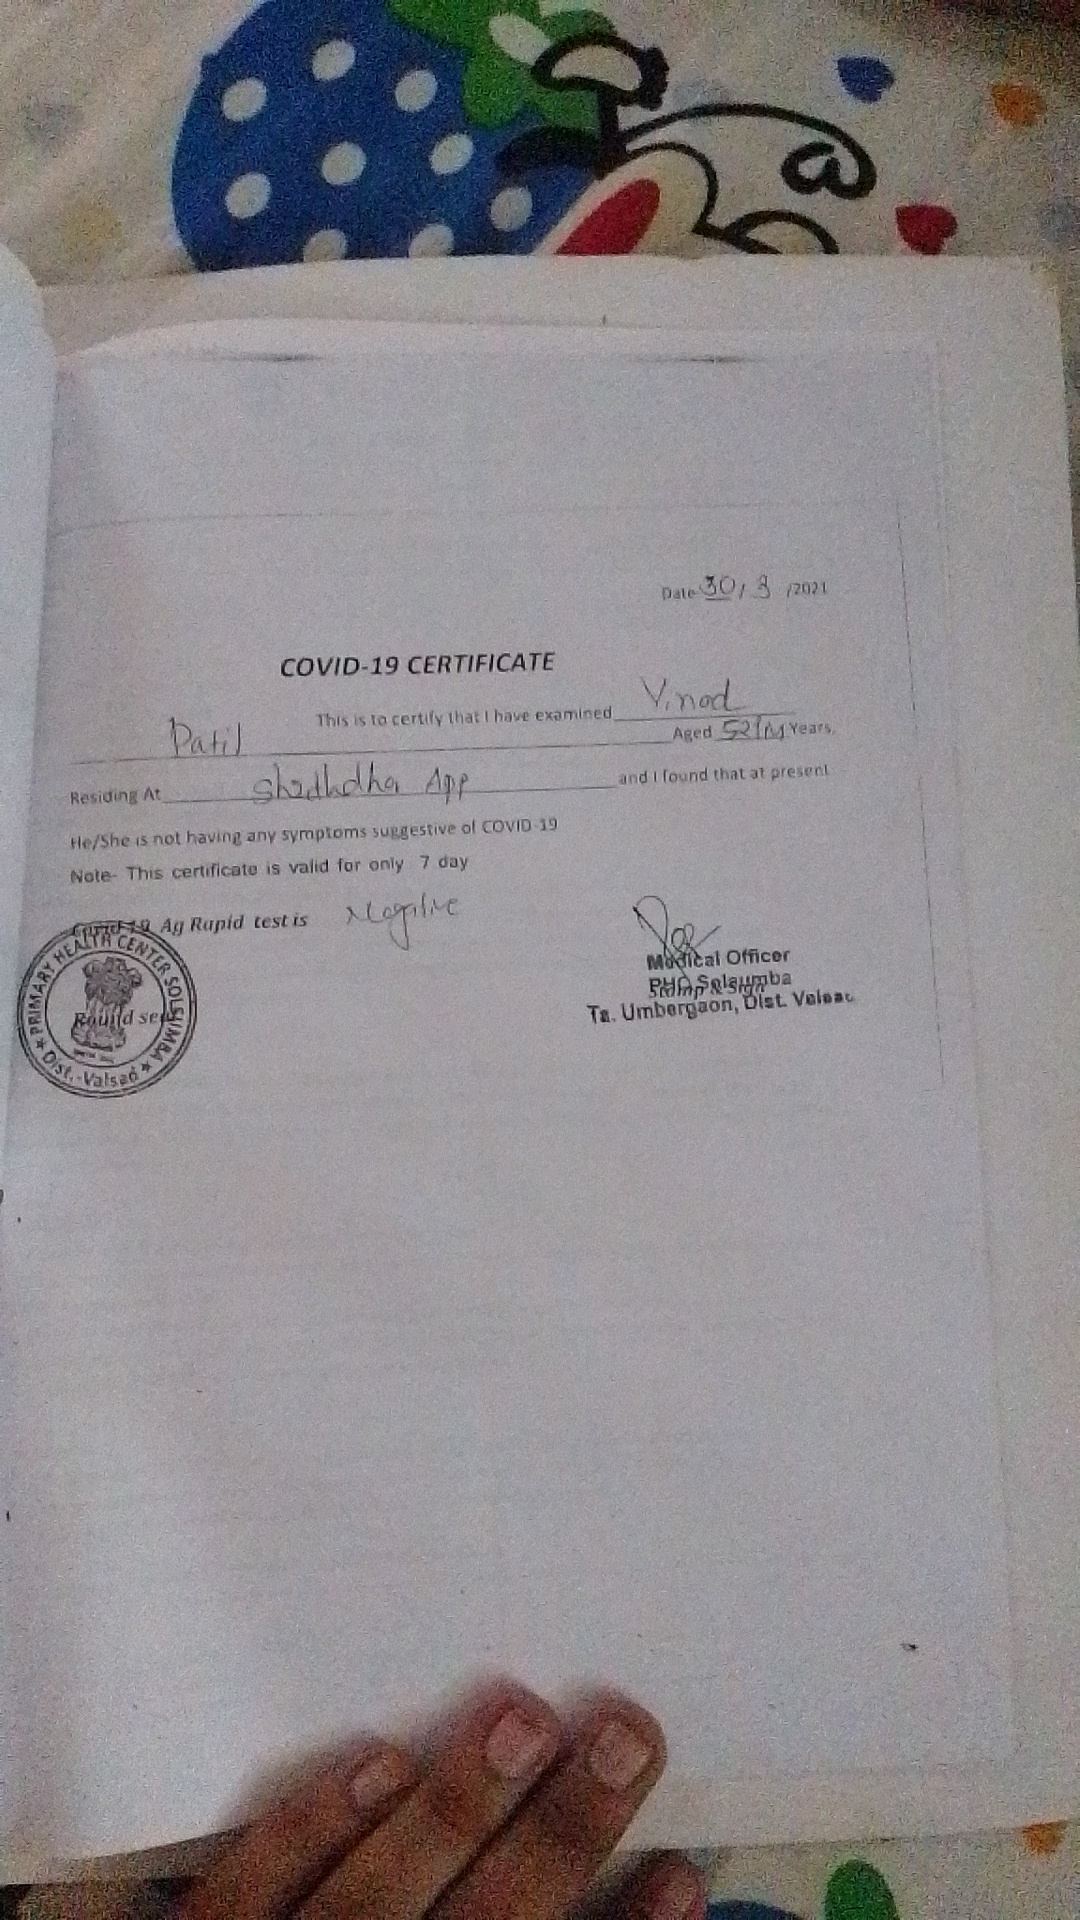 Date 30/3/2021
COVID-19 CERTIFICATE
This is to certify that I have examined Vinod
Patil Aged 52/M Years,
Residing At Shadhdha App and I found that at present
He/She is not having any symptoms suggestive of COVID-19
Note- This certificate is valid for only 7 day
Covid-19 Ag Rapid test is Negitive
PRIMARY HEALTH CENTER SOLSUMBA
Dist.-Valsad
Round seal
Medical Officer
PHC Solsumba
Stamp & Sign
Ta. Umbergaon, Dist. Valsad